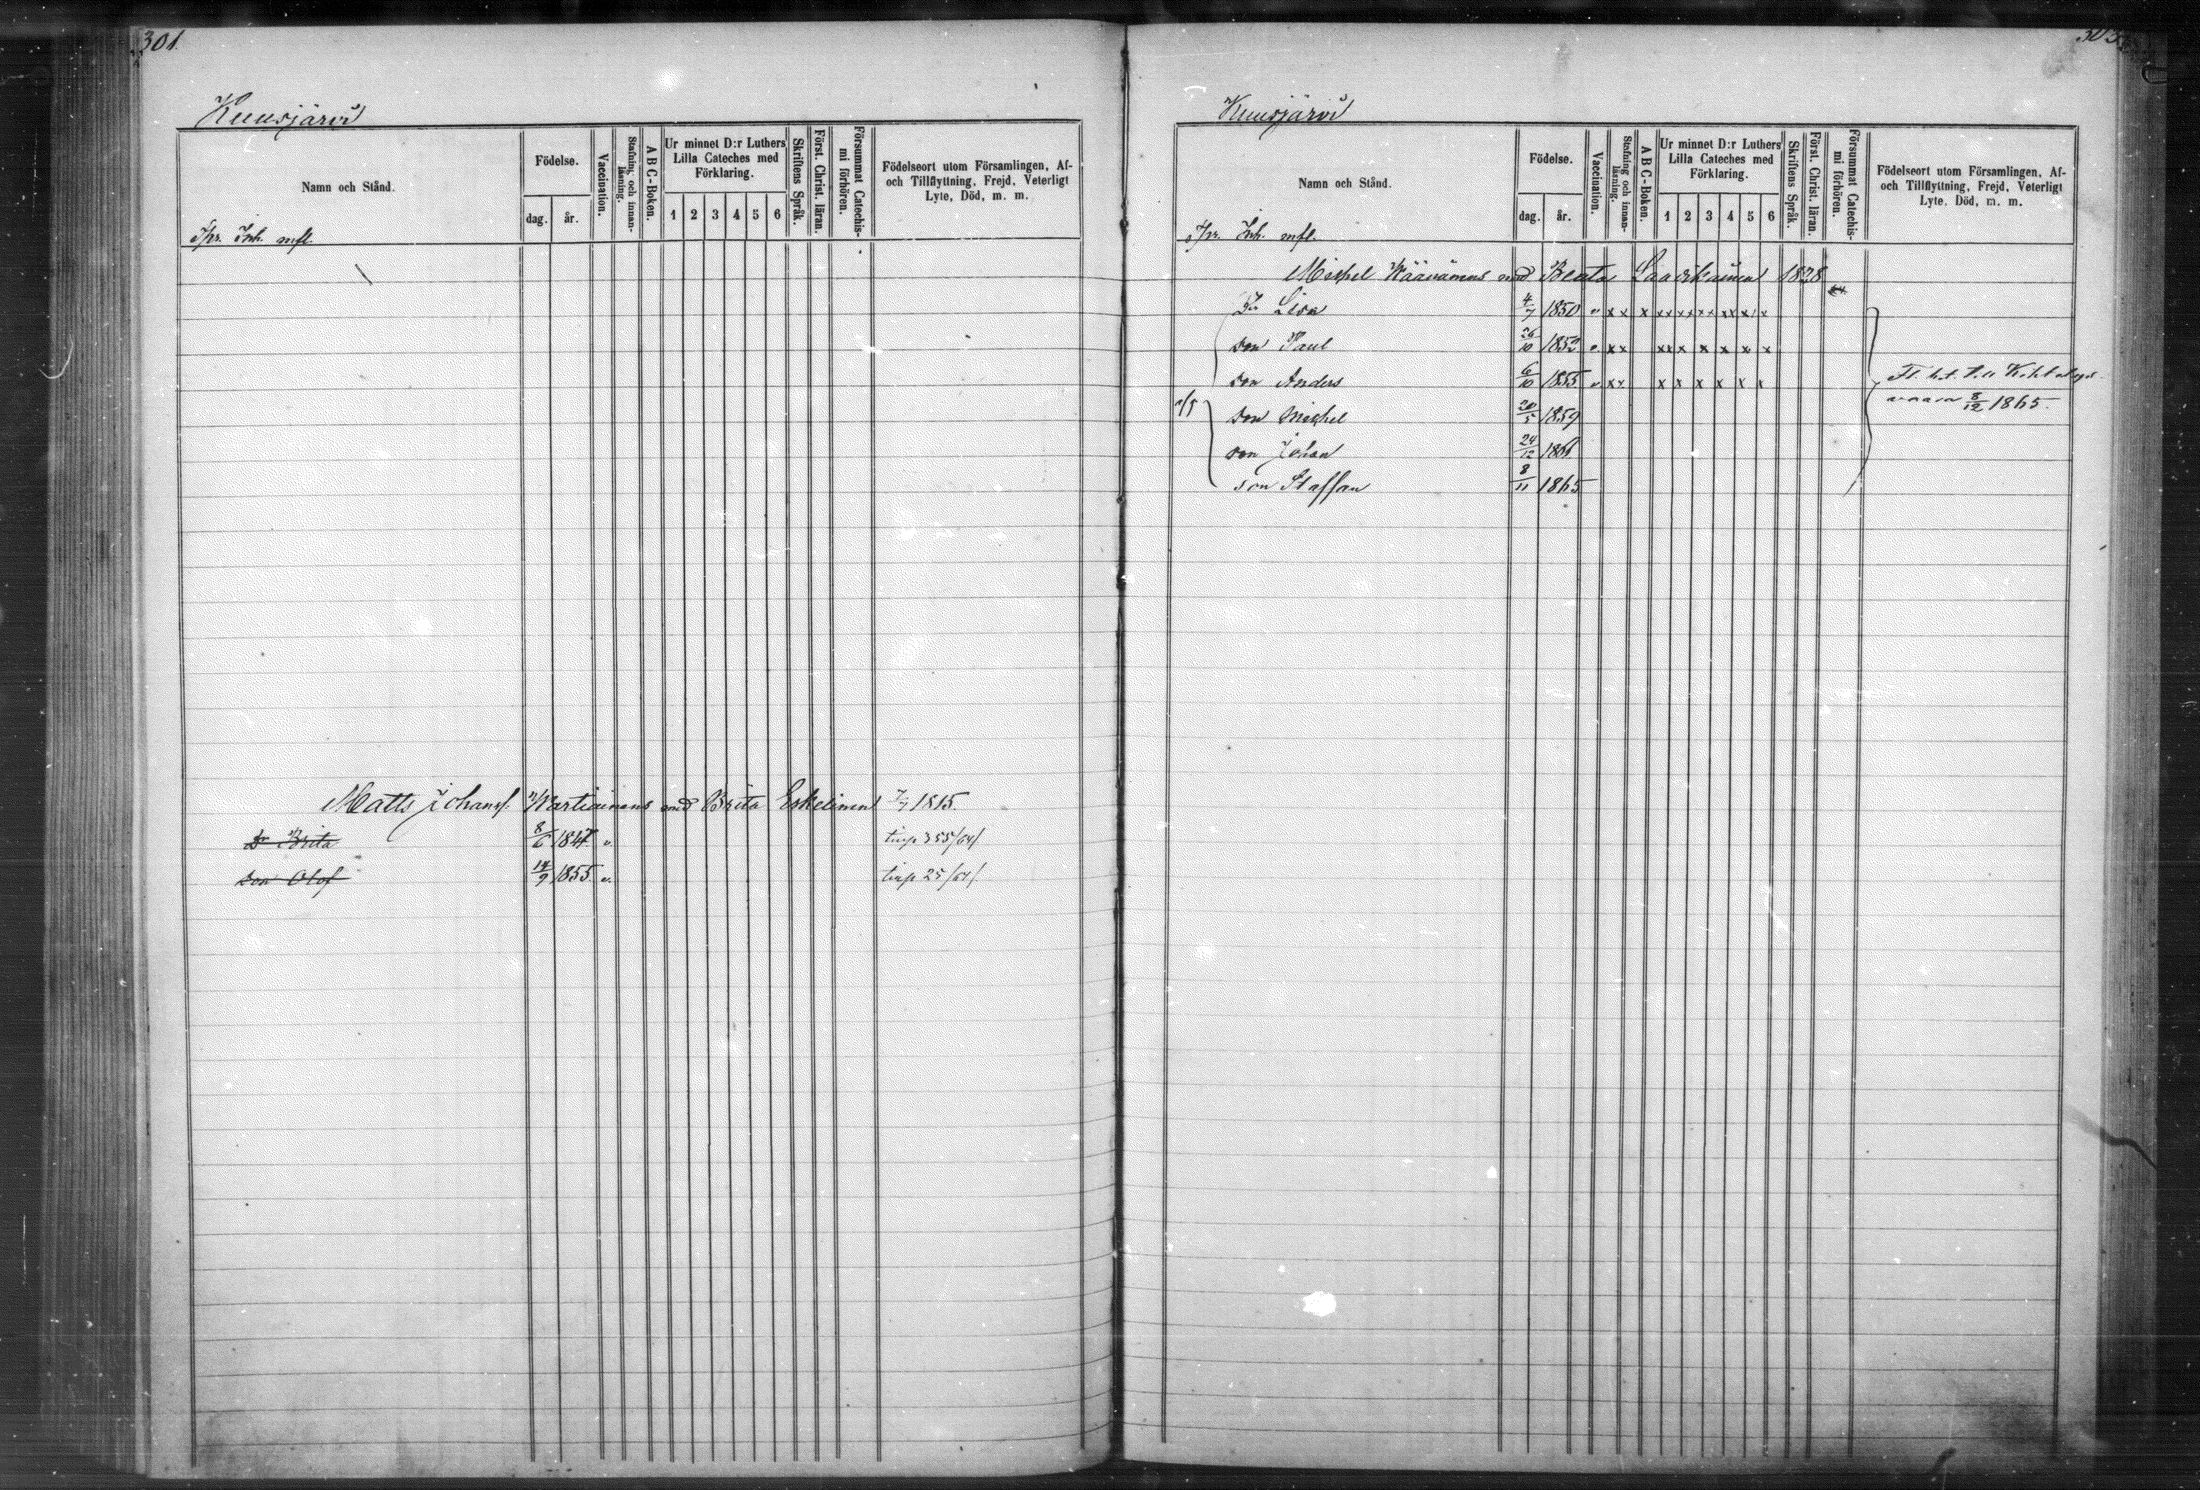 301
Kuusjärvi
Namn och Stånd.
Födelse.
dag. år.
Vaccination.
Stafning och innanläsning.
A B C-Boken.
Ur minnet D:r Luthers Lilla Cateches med Förklaring.
1 2 3 4 5 6
Skriftens Språk.
Först. Christ. läran.
Försummat Catechismi förhören.
Födelseort utom Församlingen, Af- och Tillflyttning, Frejd, Veterligt Lyte, Död, m. m.
Inh. mfl.
Matts Johansf. Wartiainens med Brita Eskelinen 7/7 1815.
D Brita 8/6 1847 "
son Olof 14/9 1855 "
303
Kuusjärvi
Namn och Stånd.
Födelse.
dag. år.
Vaccination.
Stafning och innanläsning.
A B C-Boken.
Ur minnet D:r Luthers Lilla Cateches med Förklaring.
1 2 3 4 5 6
Skriftens Språk.
Först. Christ. läran.
Försummat Catechismi förhören.
Födelseort utom Församlingen, Af- och Tillflyttning, Frejd, Veterligt Lyte, Död, m. m.
Inh. mfl.
Michel Wäänänens med Beata 1828
Lisa 4/7 1850 " x x x x x x x x x x x x x x
son Paul 26/10 1852 " x x x x x x x x x
son Anders 6/10 1855 " x x x x x x x x
son Michel 20/5 1859
son Johan 24/12 1861
son Staffan 8/11 1865
8/12 1865.